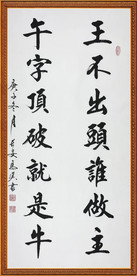 王不出頭誰做主
午字頂破就是牛
庚子冬月